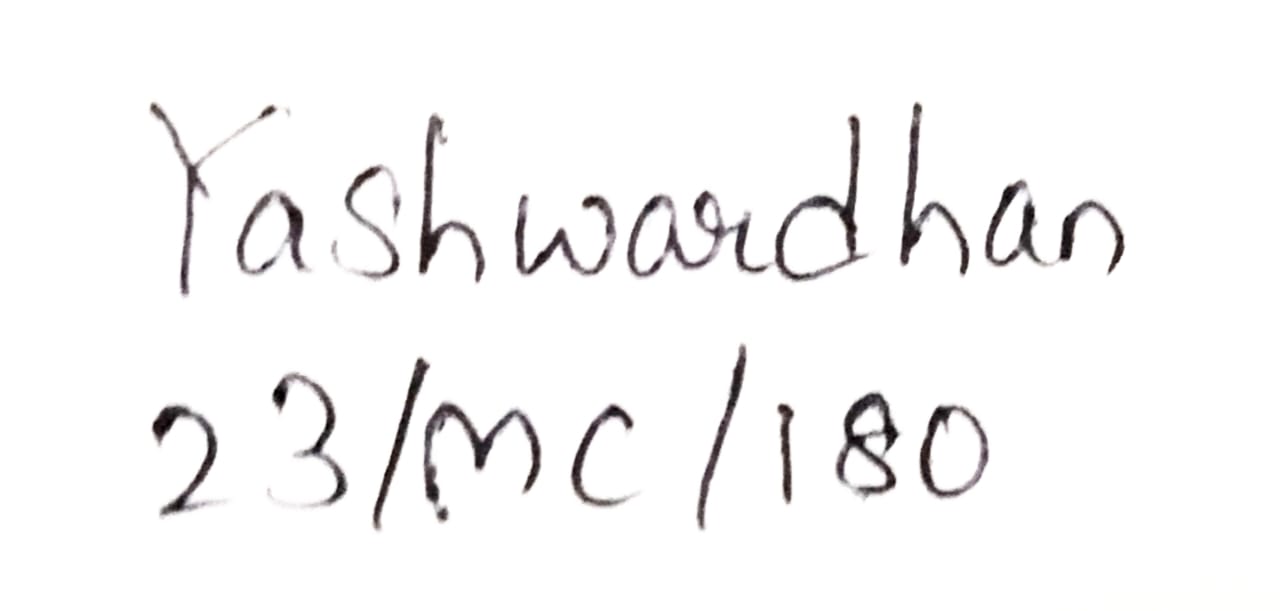 Yashwardhan
23/MC/180